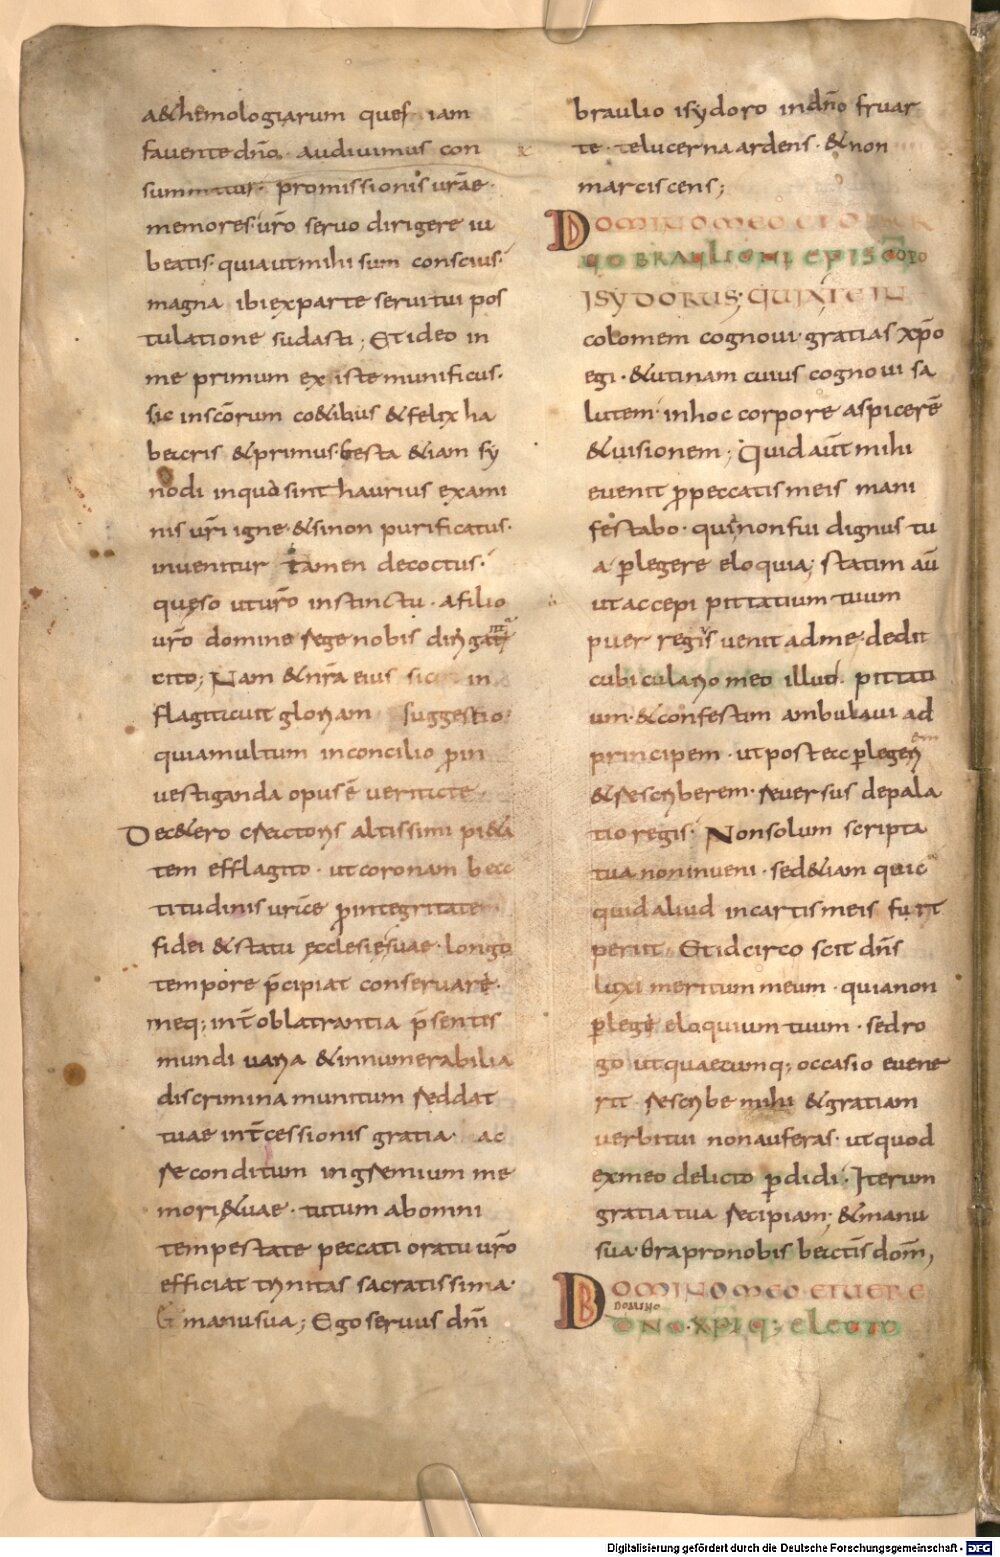 a&hemologiarum ques iam
fauente dño. audiuimus con
summatus. promissionis uṝae.
memores uṝo seruo dirigere iu
beatis. quia ut mihi sum conscius.
magna ibi ex parte serui tui pos
tulatione sudasti; Et ideo in
me primum existe munificus.
sic in scōrum co&ibus & felix ha
bearis & primus. Gesta &iam sy
nodi in quo sint haurius exami
nis uṝi igne. & si non purificatus.
inuenitur tamen decoctus.
queso ut uṝo instinctu. a filio
uṝo domine rege nobis dirigat
cito; Nam & nṝa eius in
flagitauit gloriam suggestio.
quia multum in concilio pro in
uestiganda opus ē ueritate
De c&ero creatoris altissimi pi&a
tem efflagito. ut coronam bea
titudinis urae pro integritate
fidei & statu ecclesiesuae. longo
tempore p̄cipiat conseruare.
meq; int̄ oblatrantia p̄sentis
mundi uaria & innumerabilia
discrimina munitum reddat
tuae int̄cessionis gratia. ac
reconditum in gremium me
mori&uae. tutum ab omni
tempestate peccati oratu uṝo
efficiat trinitas sacratissima.
manu sua; Ego seruus dñi
braulio isydoro in dño fruar
te. te lucerna ardens. & non
marciscens;
DOMINO MEO ET
BRAULIONI EPISCOPO
ISYDORUS; QUIA TE IN
colomem cognoui gratias xp̄o
egi. & utinam cuius cognoui sa
lutem in hoc corpore aspicerē
& uisionem; Quid aūt mihi
euenit ꝓ peccatis meis mani
festabo. quia non fui dignus tu
a ꝑlegere eloquia; statim aū
ut accepi pittatium tuum
puer regis uenit ad me. dedit
cubiculario meo illud. pittati
um. & confestim ambulaui ad
principem. ut postea ꝑlegerem
& rescriberem. reuersus de pala
tio regis. Non solum scripta
tua non inueni. sed &iam quic
quid aliud in cartis meis fuit
periit. Et idcirco scit dñs
luxi meritum meum. quia non
ꝑlegi eloquium tuum. sed ro
go ut quaecumq; occasio euene
rit rescribe mihi & gratiam
uerbi tui non auferas. ut quod
ex meo delicto ꝑdidi. Iterum
gratia tua recipiam; & manu
sua. Ora pro nobis beatis dom̄;
DOMINO MEO ET UERE
DOMINO
DNO. XPIQ; ELECTO
Digitalisierung gefördert durch die Deutsche Forschungsgemeinschaft - DFG